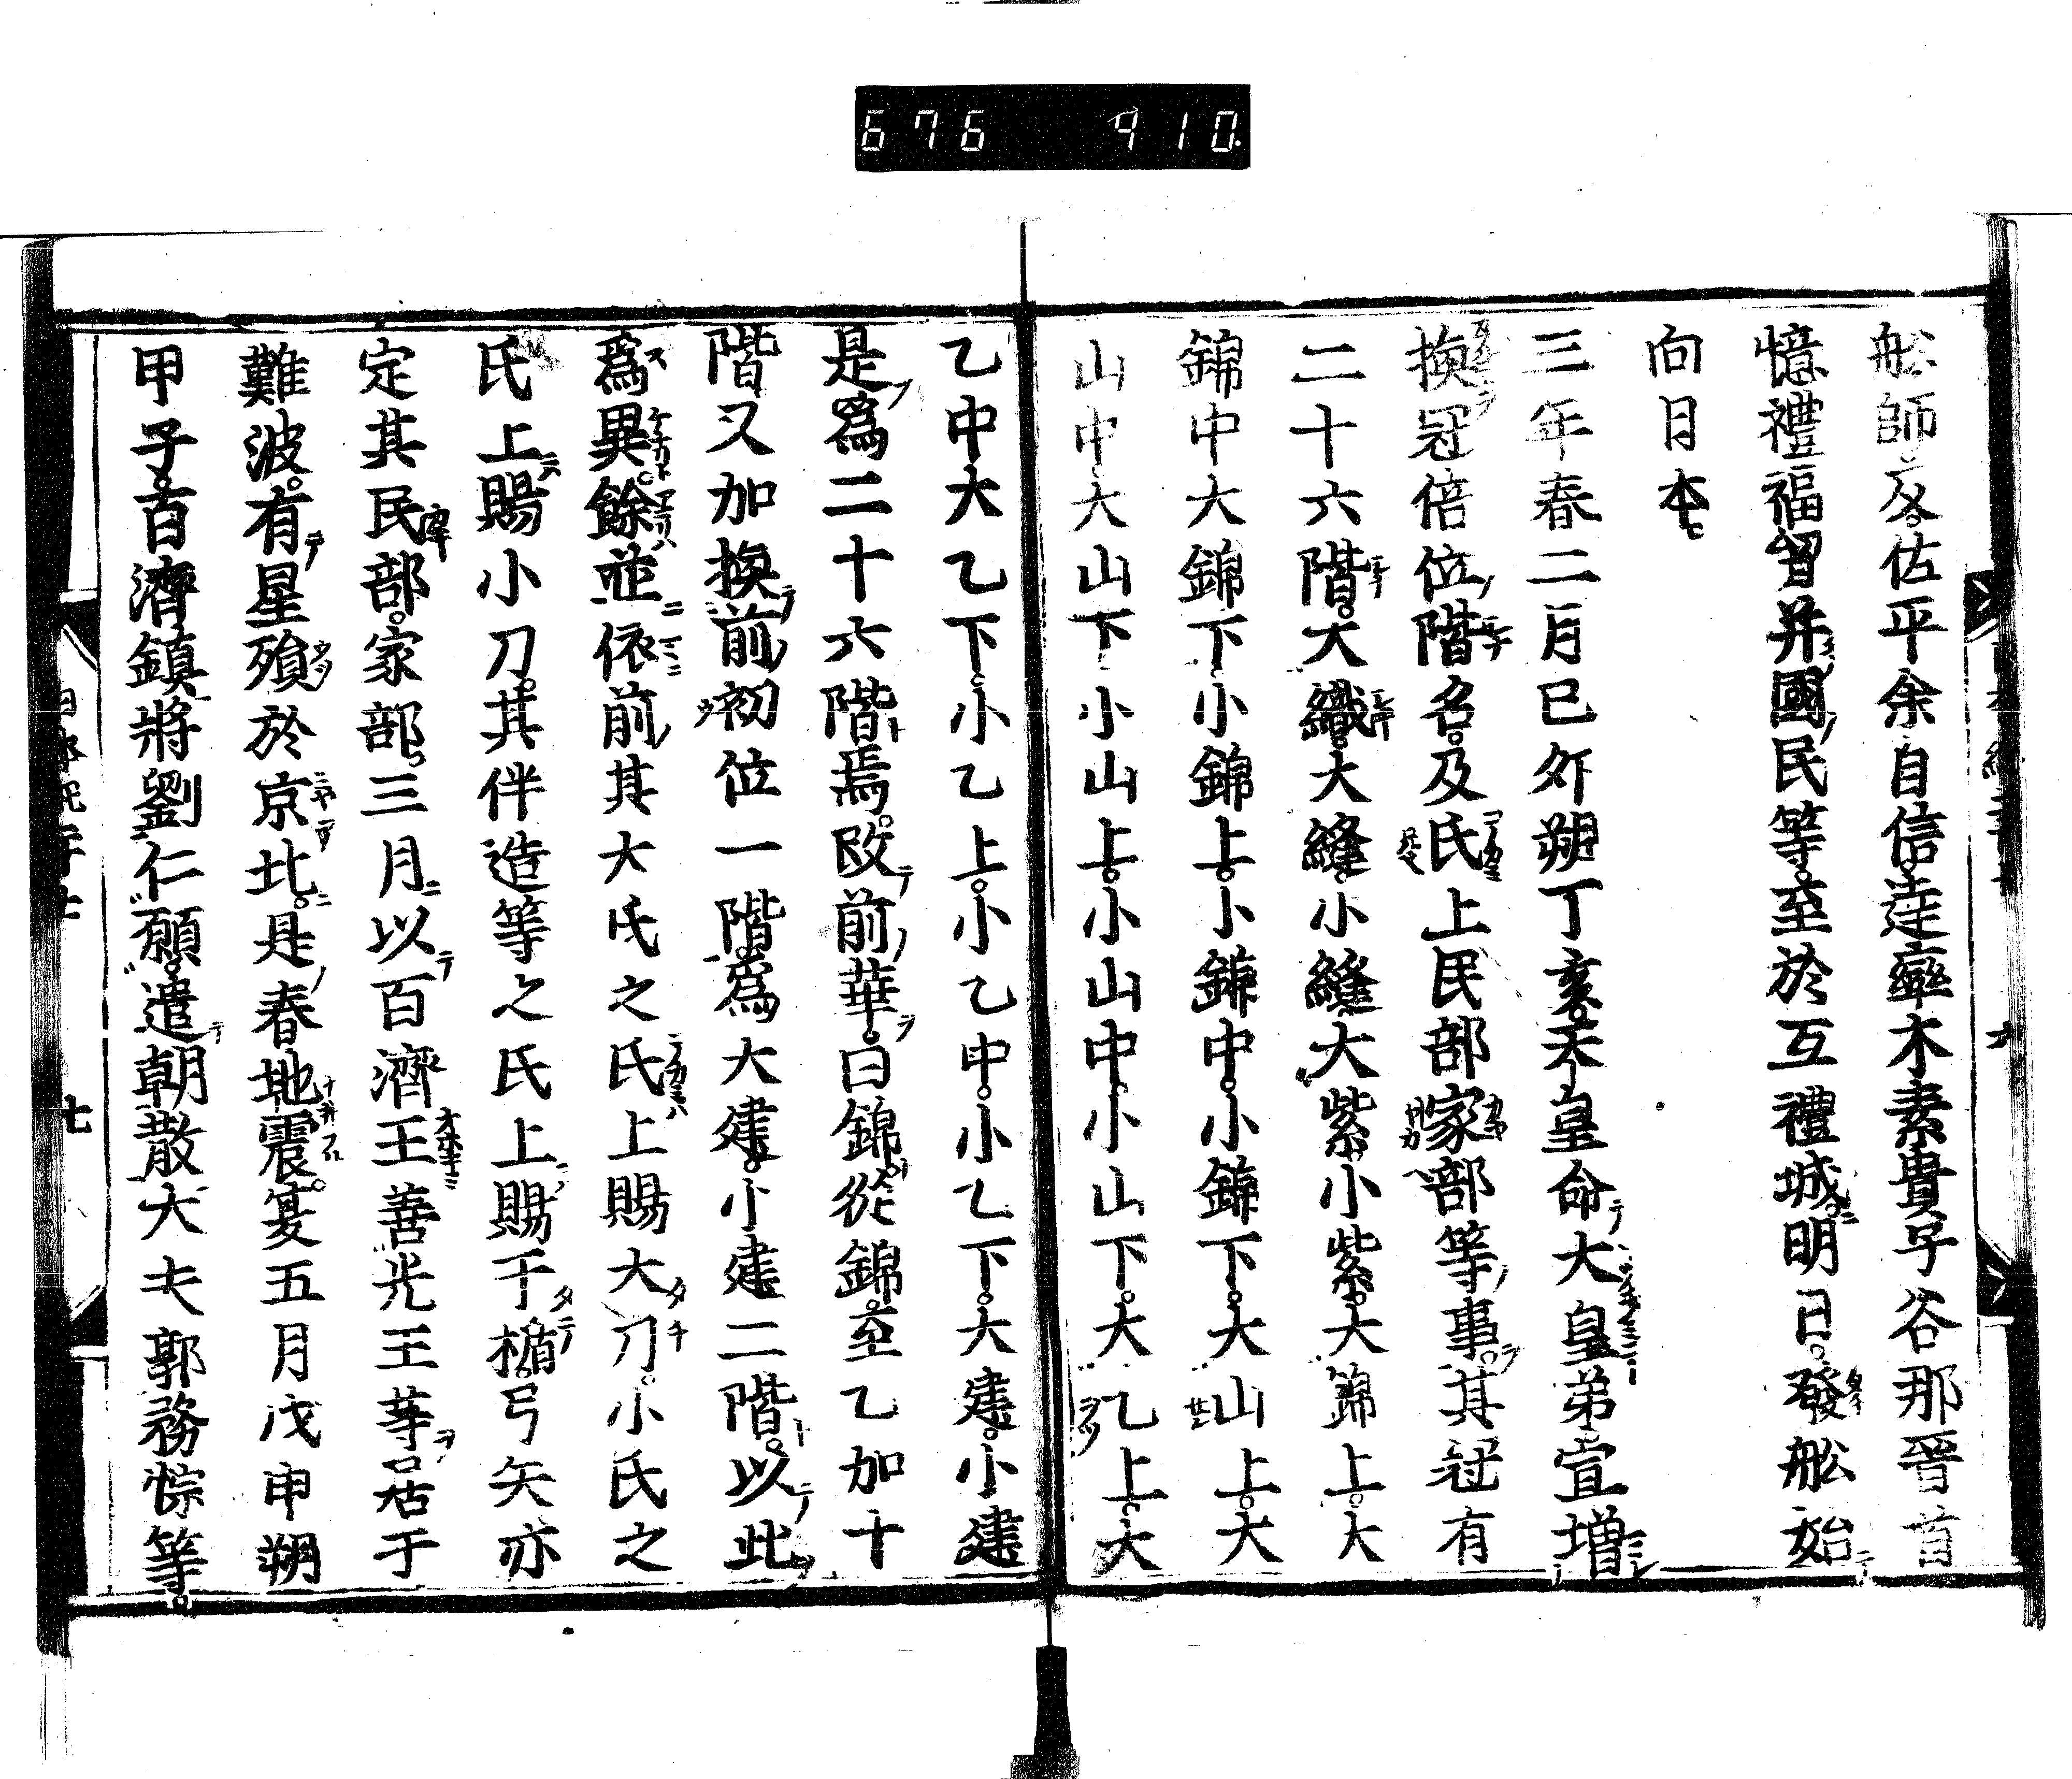 676 910
舩師及佐平余自信達率木素貴子谷那晉首
憶禮福留并國民等至於互禮城明日發舩始
向日本
三年春二月己夘朔丁亥天皇命大皇弟宣増
換冠倍位階名及氏上民部家部等事其冠有
二十六階大織大縫小縫大紫小紫大錦上大
錦中大錦下小錦上小錦中小錦下大山上大
山中大山下小山上小山中小山下大乙上大
乙中大乙下小乙上小乙中小乙下大建小建
是爲二十六階焉改前華曰錦從錦至乙加十
階又加換前初位一階爲大建小建二階以此
爲異餘並依前其大氏之氏上賜大刀小氏之
氏上賜小刀其伴造等之氏上賜干楯弓矢亦
定其民部家部三月以百濟王善光王等居于
難波有星殞於京北是春地震夏五月戊申朔
甲子百濟鎮將劉仁願遣朝散大夫郭務悰等
七